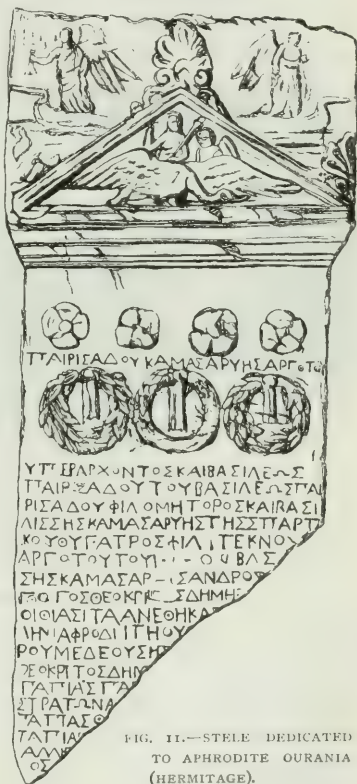 ΠΑΙΡΙΣΑΔΟΥΚΑΜΑΣΑΡΥΗΣΑΡΓΟΤΟ
ΥΠΕΡΑΡΧΟΝΤΟΣΚΑΙΒΑΣΙΛΕΩΣ
ΠΑΙΡΙΣΑΔΟΥΤΟΥΒΑΣΙΛΕΩΣΠΑΙ
ΡΙΣΑΔΟΥΦΙΛΟΜΗΤΟΡΟΣΚΑΙΒΑΣΙ
ΛΙΣΣΗΣΚΑΜΑΣΑΡΥΗΣΤΗΣΣΠΑΡΤ
ΚΟΥΘΥΓΑΤΡΟΣΦΙΛ ΤΕΚΝΟΥ
ΑΡΓΟΤΟΥΤΟΥΙ ΟΥΒΑΣ
ΣΗΣΚΑΜΑΣΑΡ ΙΣΑΝΔΡΟ
ΟΓΟΣΘΕΟΚΡΙ ΣΔΗΜΗ
ΟΙΘΙΑΣΙΤΑΙΑΝΕΘΗΚΑ
ΑΦΡΟΔΙΤΗΟΥ
ΡΟΥΜΕΔΕΟΥΣΗ
ΘΕΟΚΡΙΤΟΣΔΗΜ
ΠΑΠΙΑΣΠΑ
ΣΤΡΑΤΩΝΑ
ΟΣ
FIG. 11.—STELE DEDICATED
TO APHRODITE OURANIA
(HERMITAGE).